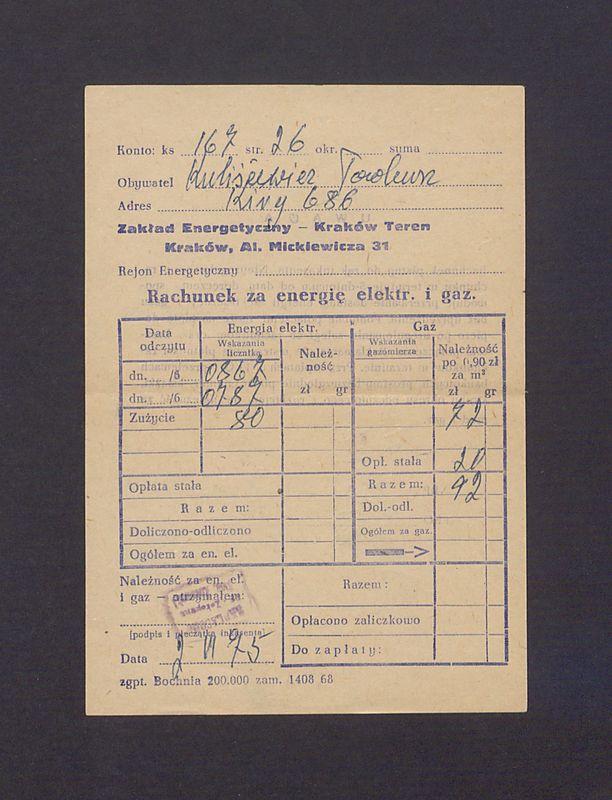 Konto: ks 167 str. 26 okr. suma
Obywatel Kuliściewicz Tadeusz
Adres Kiny 686
Zakład Energetyczny – Kraków Teren
Kraków, Al. Mickiewicza 31
Rejon Energetyczny
Rachunek za energię elektr. i gaz.
Data odczytu
Energia elektr.
Gaz
Wskazania licznika
Należność
Wskazania gazomierza
Należność po 0,90 zł za m³
zł gr
zł gr
dn. /8 0867
dn. /6 0787
Zużycie 80 72
Opł. stała 20
Opłata stała
Razem: 92
Razem:
Dol.-odl.
Doliczono-odliczono
Ogółem za gaz.
Ogółem za en. el.
Należność za en. el.
i gaz — otrzymałem:
Razem:
Opłacono zaliczkowo
[podpis i pieczątka inkasenta]
Do zapłaty:
Data 2 VI 75
zgpt. Bochnia 200.000 zam. 1408 68